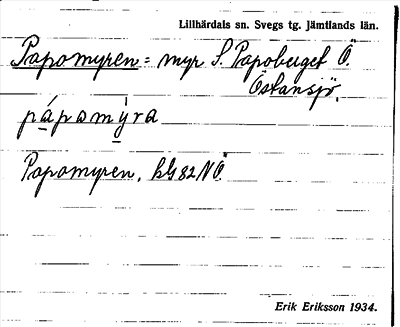 Lillhärdals sn. Svegs tg. Jämtlands län.
Papomyren = myr S. Papoberget Ö.
Östansjö.
pápomýra
Papomyren, bG82NÖ.
Erik Eriksson 1934.